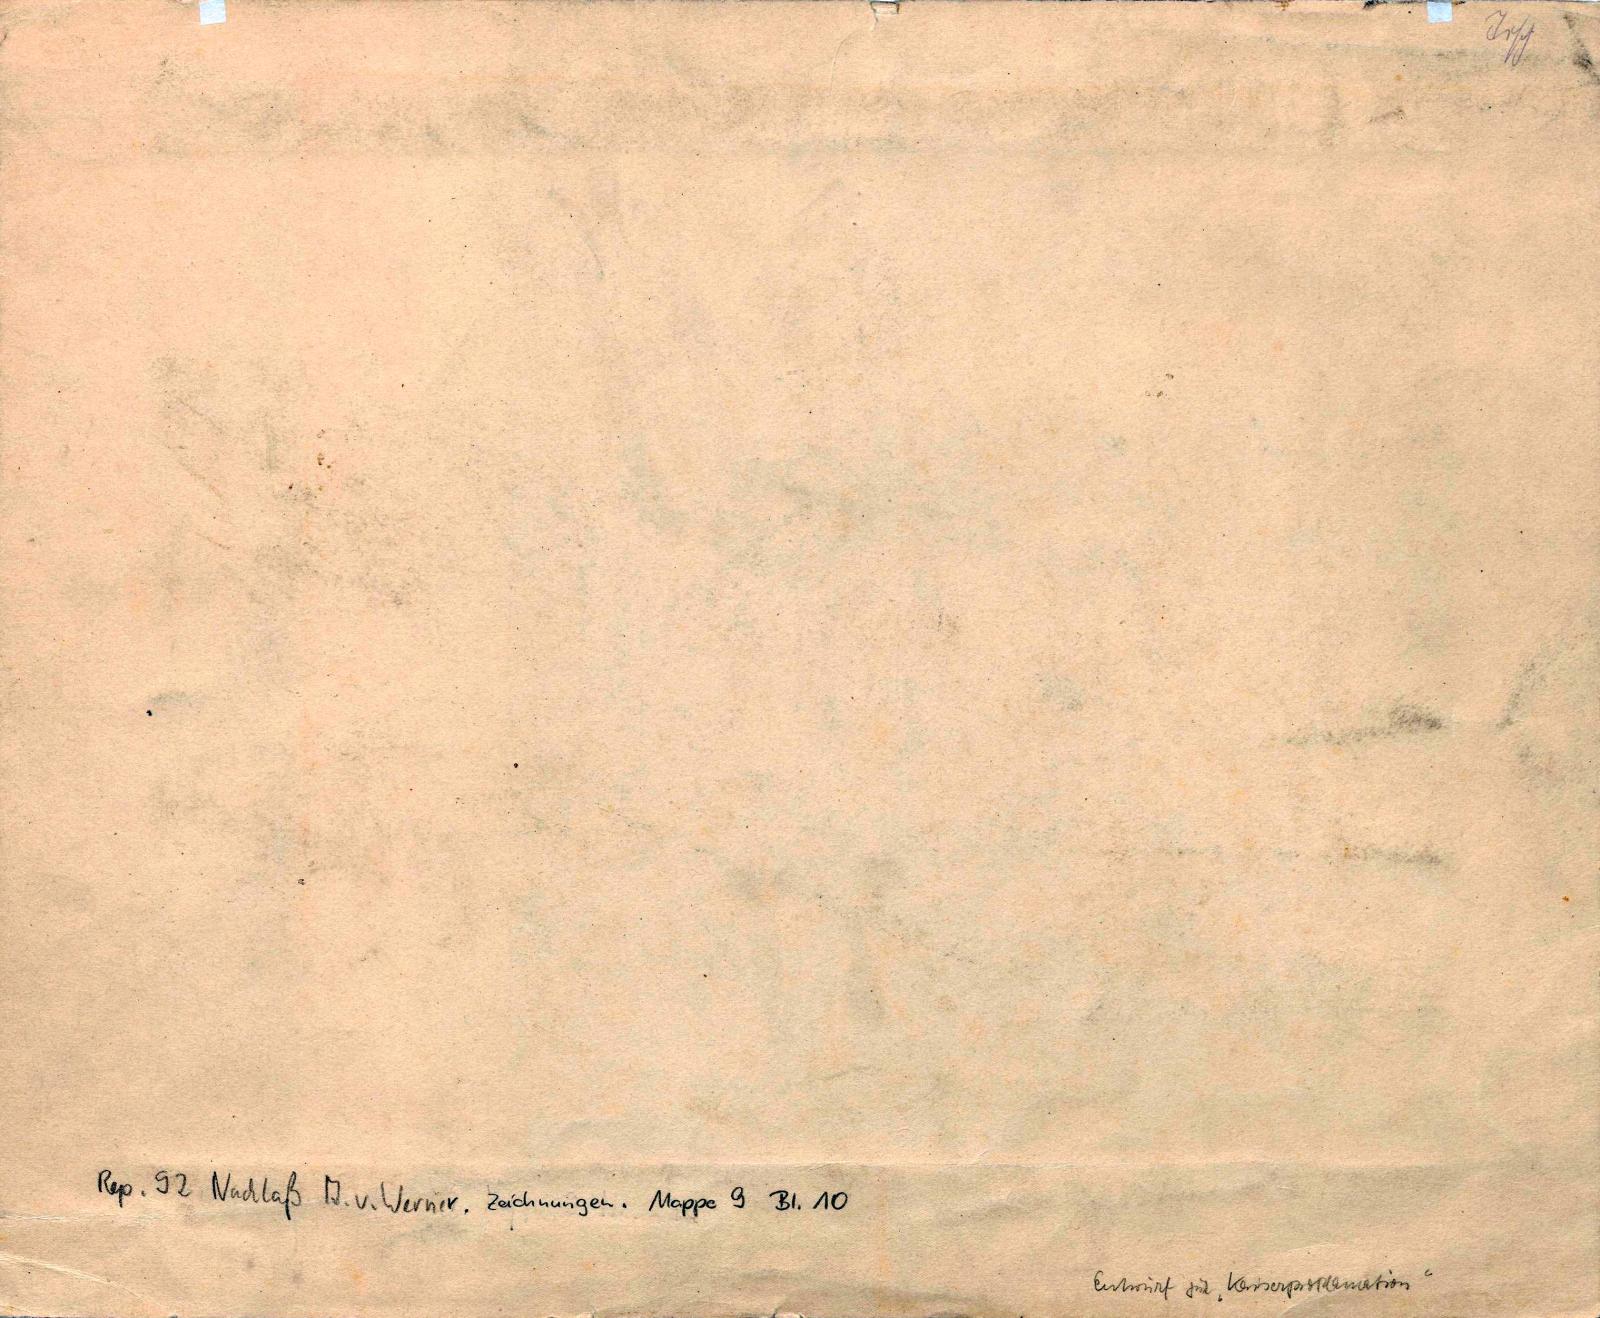 Rep. 92 Nachlaß A. v. Werner. Zeichnungen. Mappe 9 Bl. 10
Entwurf für „Kaiserproklamation“